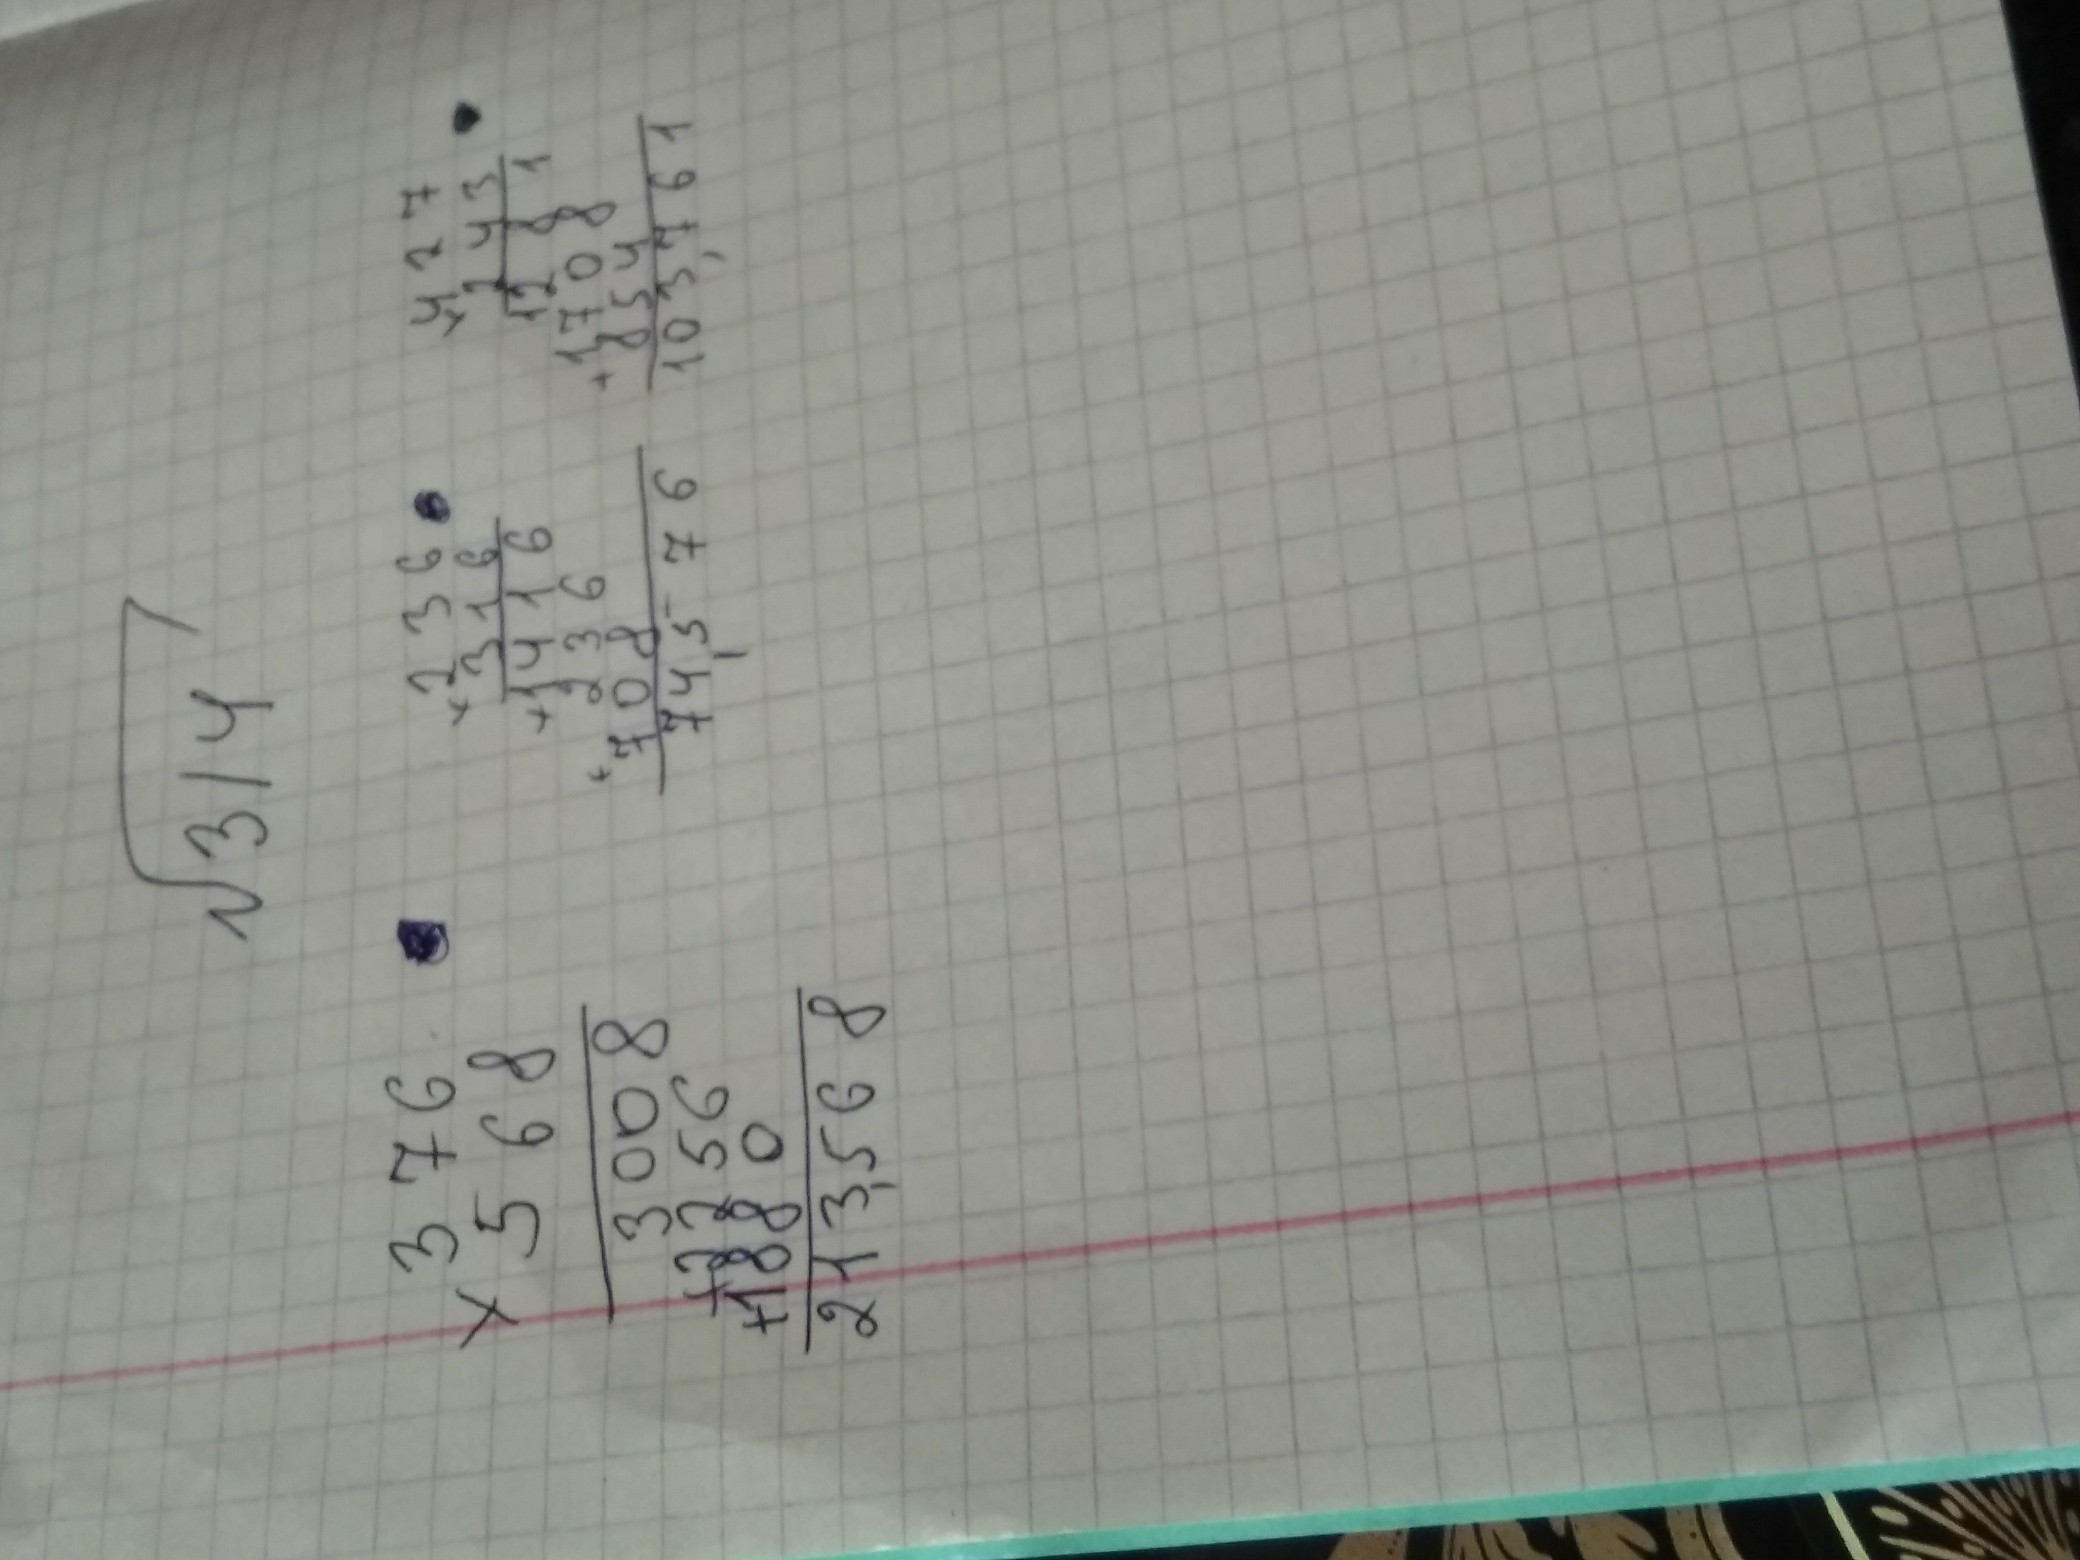 √314
376
× 568
3008
+2256
+1880
213,568
236
× 316
1416
+ 236
+ 708
74,576
427
× 243
1281
1708
+ 854
103,761